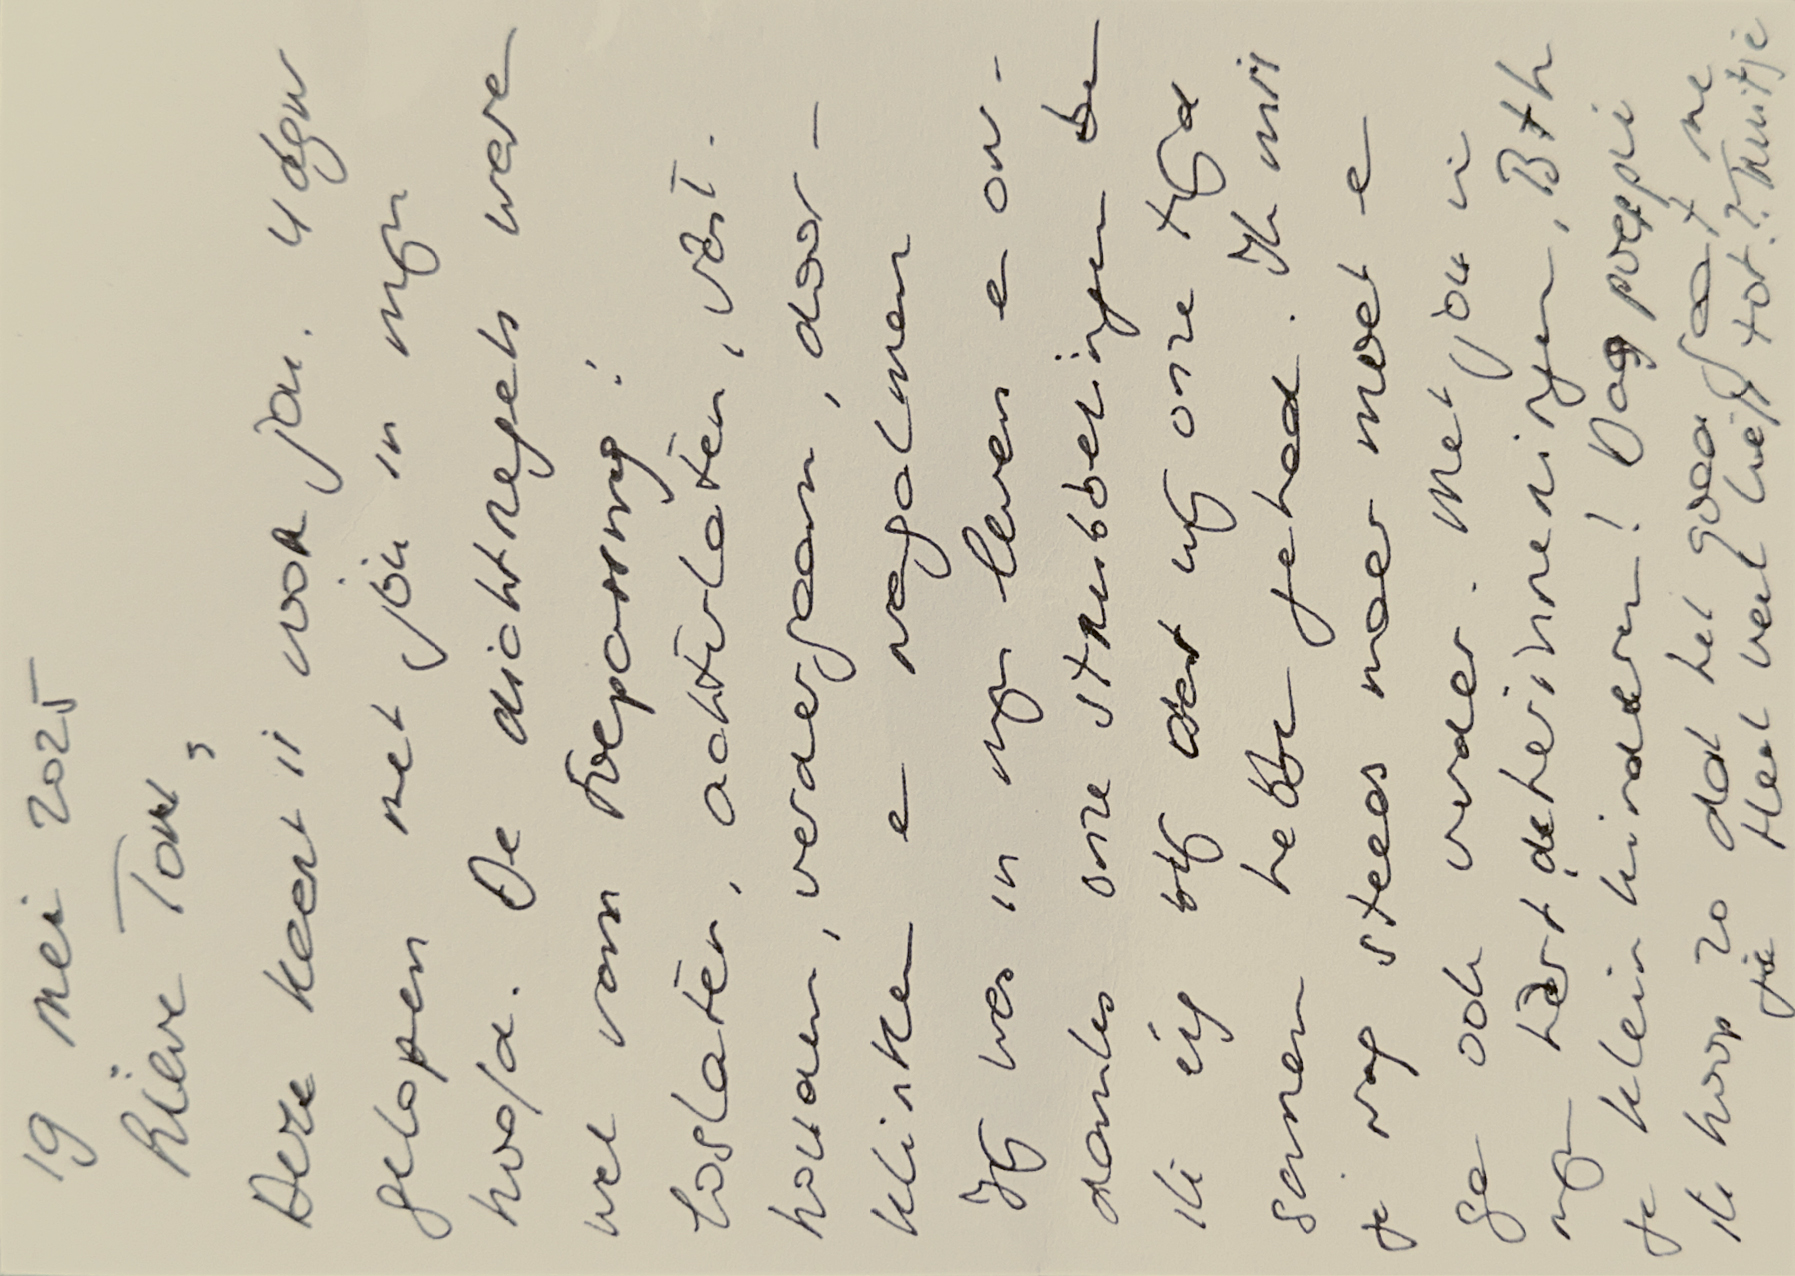 19 mei 2025
Lieve Tom,
Deze keert is voor jou. 4 dgn
gelopen met jou in mijn
hoofd. De dichtregels ware
wel van toepassing:
loslaten, achterlaten, vast-
houden, verdergaan, door-
klinken e nagalmen
Jij was in mijn leven e on-
danks onze strubbelingen be
ik erg blij dat wij onze tijd
samen hebbe gehad. Ik mis
je nog steeds maar moet e
ga ook verder. Met jou in
mijn hart, de herinneringen, Bth
je kleinkinderen! Dag poeppie
ik hoop zo dat het goed gaat me
je Heel veel liefs tot?? Truitje